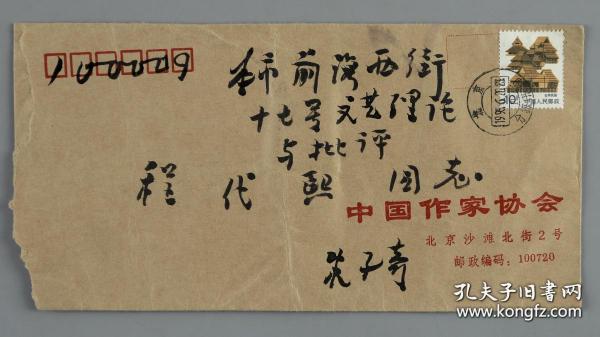 100009
本市前海西街
十七号文艺理论
与批评
程代熙 同志
中国作家协会
北京沙滩北街2号
邮政编码：100720
10
中国人民邮政
孔夫子旧书网
www.kongfz.com